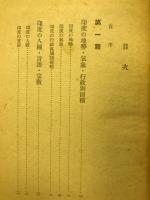 目次
自序
第一篇
印度の地勢・気象・行政別面積
印度の地勢
印度の気象
印度の行政区劃別面積
印度の人種・言語・宗教
印度の人種
印度の言語